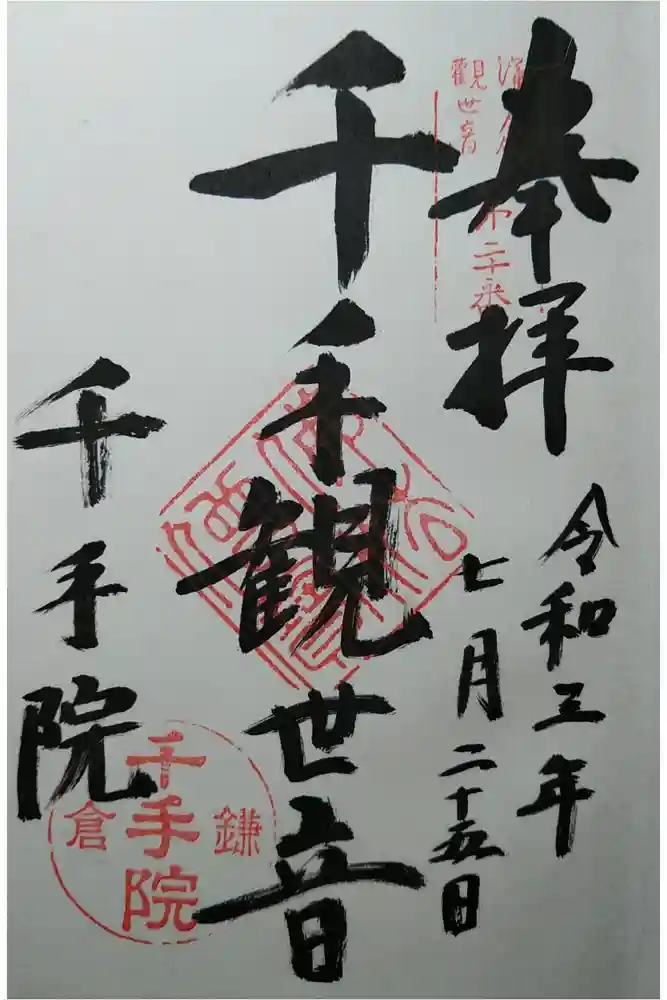 奉拝
令和三年
七月二十五日
観世音
第二十番
千手観世音
千手院
鎌倉
千手院